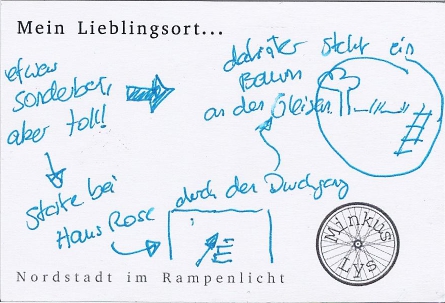 Mein Lieblingsort...
etwas
sonderbar,
aber toll!
Starte bei
Hans Rose
durch den Durchgang
dahinter steht ein
Baum
an den Gleisen
Minkus
Lys
Nordstadt im Rampenlicht